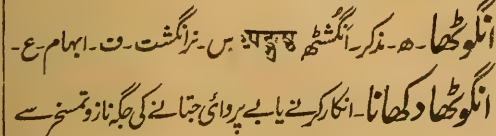 انگوٹھا۔ ھ۔ مذکر۔ اَنگُشٹھ अङ्गुष्ठ س۔ نرانگشت۔ ف۔ ابہام۔ ع۔
انگوٹھا دکھانا۔ انکار کرنے یا بے پروائی جتانے کی جگہ نازوتمسخر سے